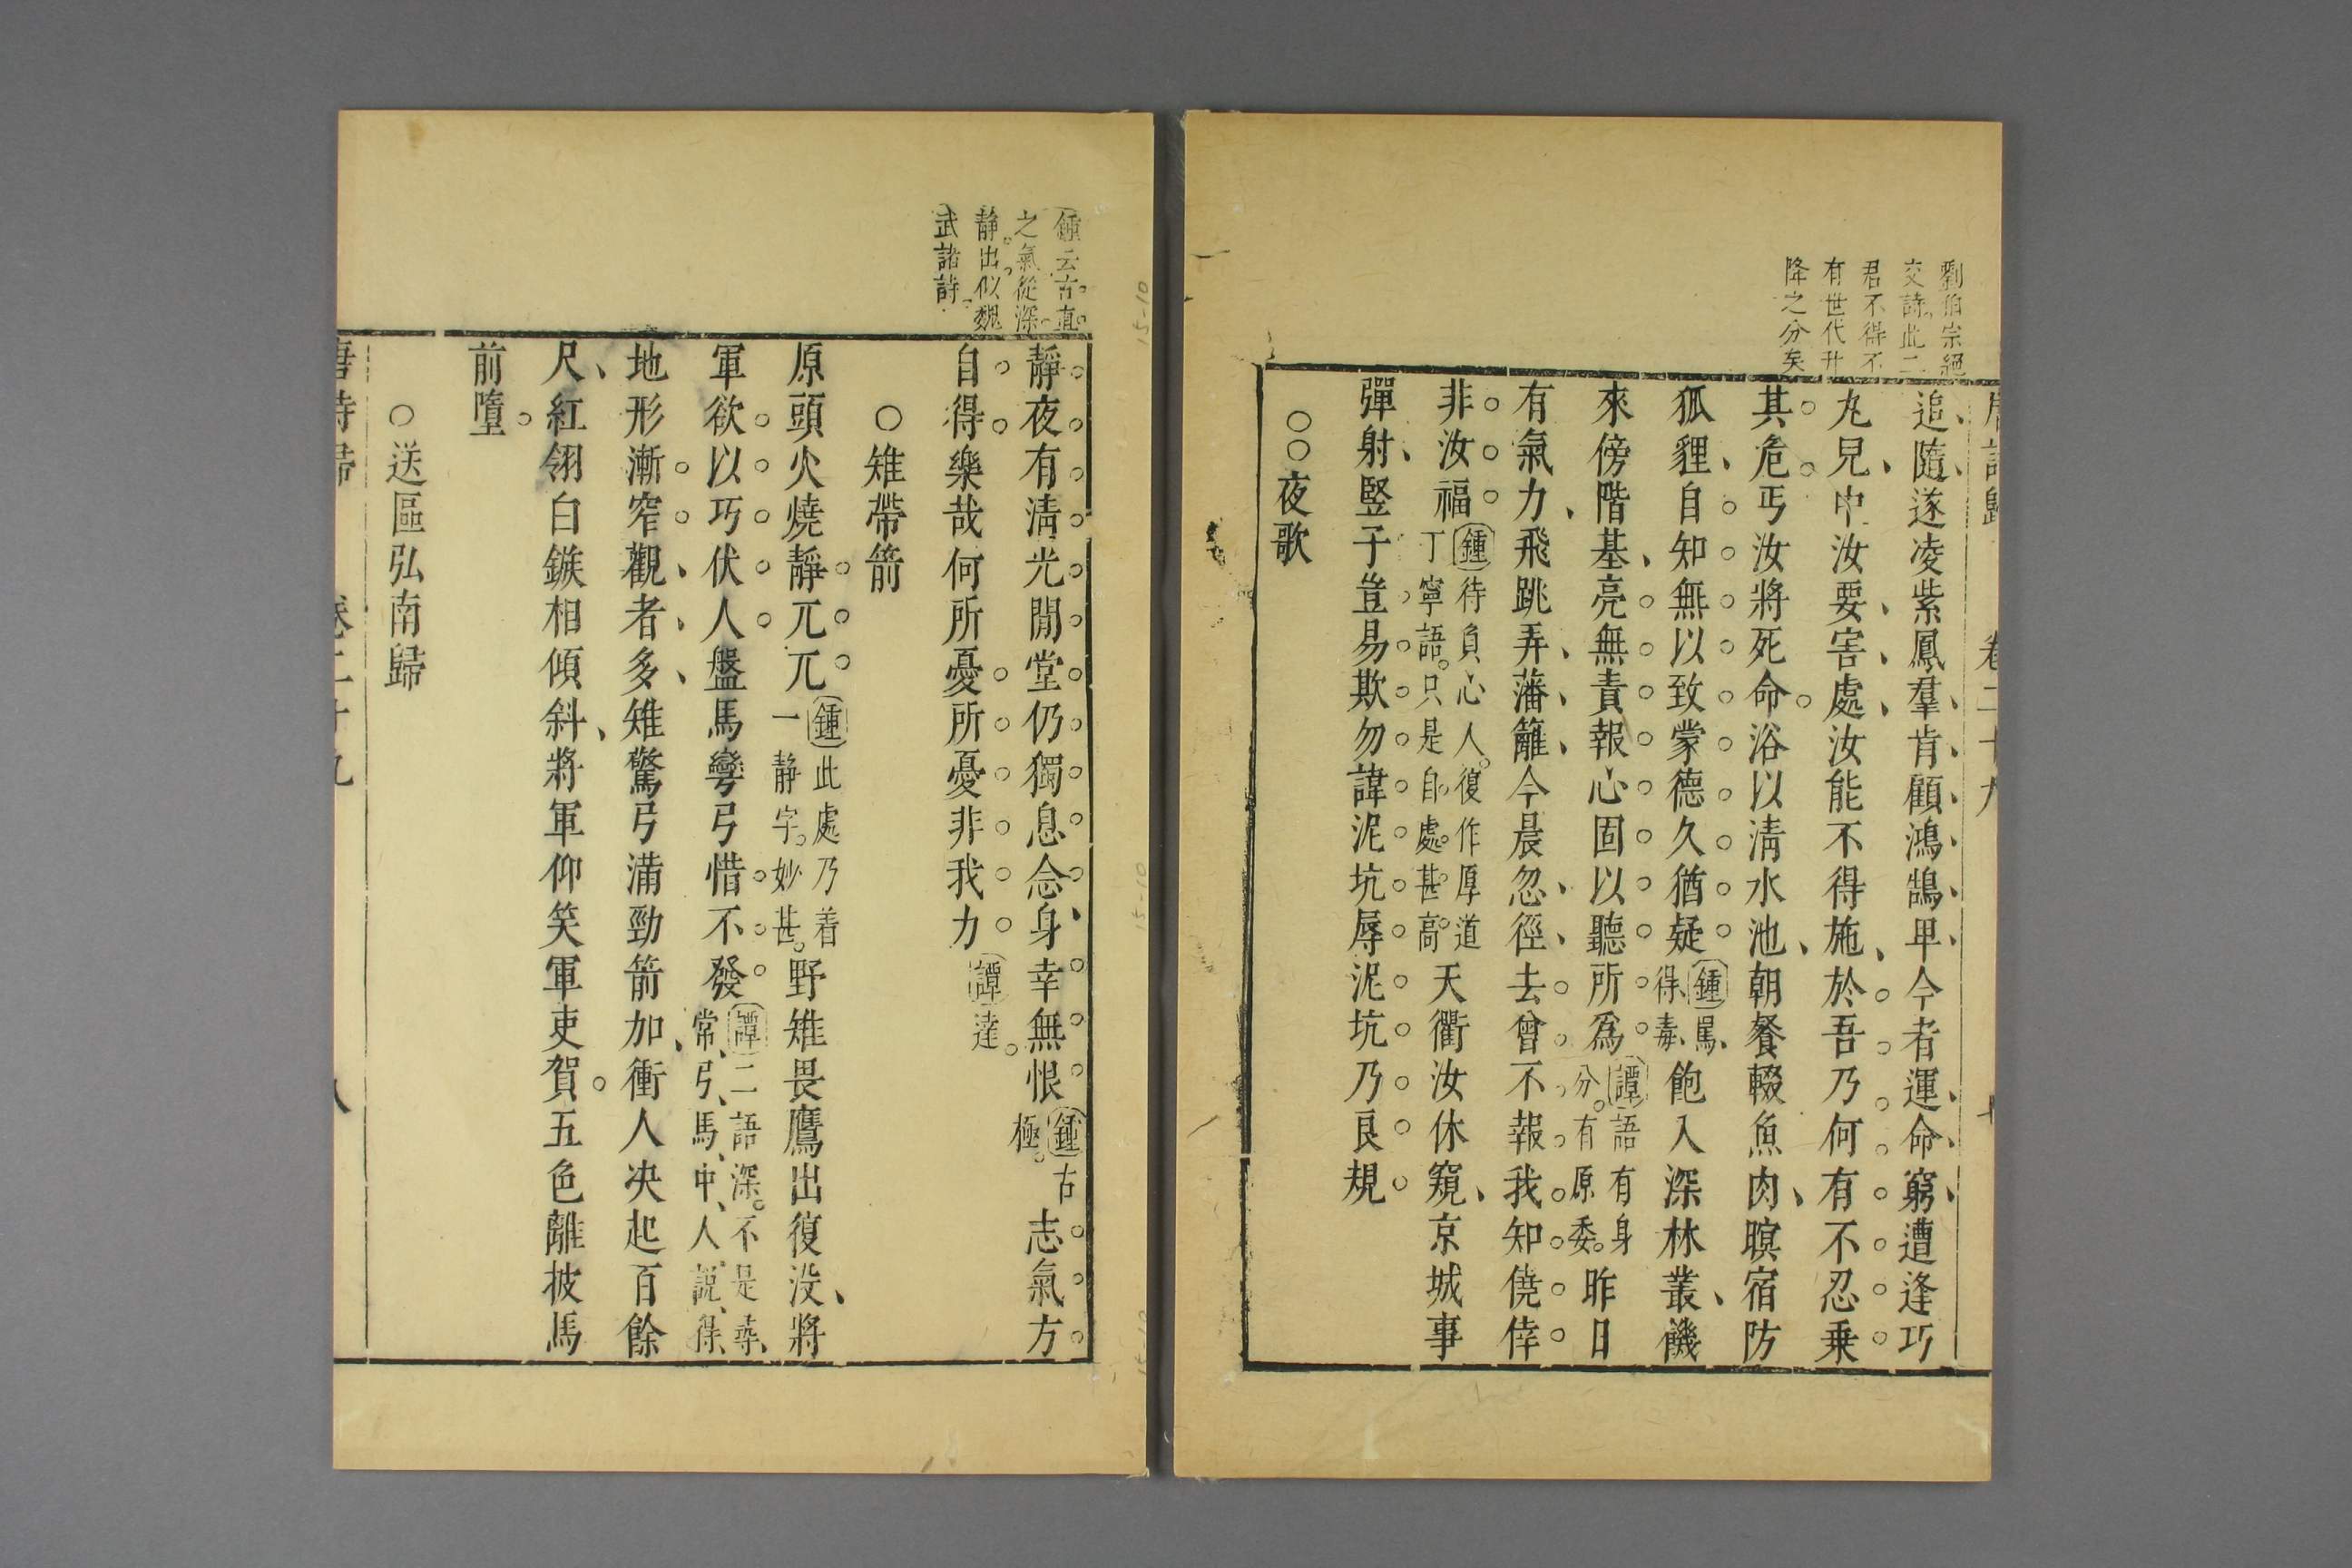 唐詩歸 卷二十九
劉伯宗絕
交詩此二
君不得不
有世代升
降之分矣
追隨遂凌紫鳳羣肯顧鴻鵠卑今者運命窮遭逢巧
丸兒中汝要害處汝能不得施於吾乃何有不忍乗
其危丐汝將死命浴以清水池朝餐輟魚肉暝宿防
狐貍自知無以致蒙德久猶疑
鍾罵
得毒
飽入深林叢饑
來傍階基亮無責報心固以聽所爲
譚語有身
分有原委
昨日
有氣力飛跳弄藩籬今晨忽徑去曾不報我知僥倖
非汝福
鍾待負心人復作厚道
丁寧語只是自處甚高
天衢汝休窺京城事
彈射竪子豈易欺勿諱泥坑辱泥坑乃良規
○○夜歌
鍾云古直
之氣從深
静出似魏
武諸詩
靜夜有清光閒堂仍獨息念身幸無恨
鍾古
極
志氣方
自得樂哉何所憂所憂非我力
譚達
○雉帶箭
原頭火燒靜兀兀
鍾此處乃着
一静字妙甚
野雉畏鷹出復没將
軍欲以巧伏人盤馬彎弓惜不發
譚二語深不是尋
常弓馬中人説得
地形漸窄觀者多雉驚弓滿勁箭加衝人决起百餘
尺紅翎白鏃相傾斜將軍仰笑軍吏賀五色離披馬
前墮
○送區弘南歸
唐詩歸 卷二十九 八